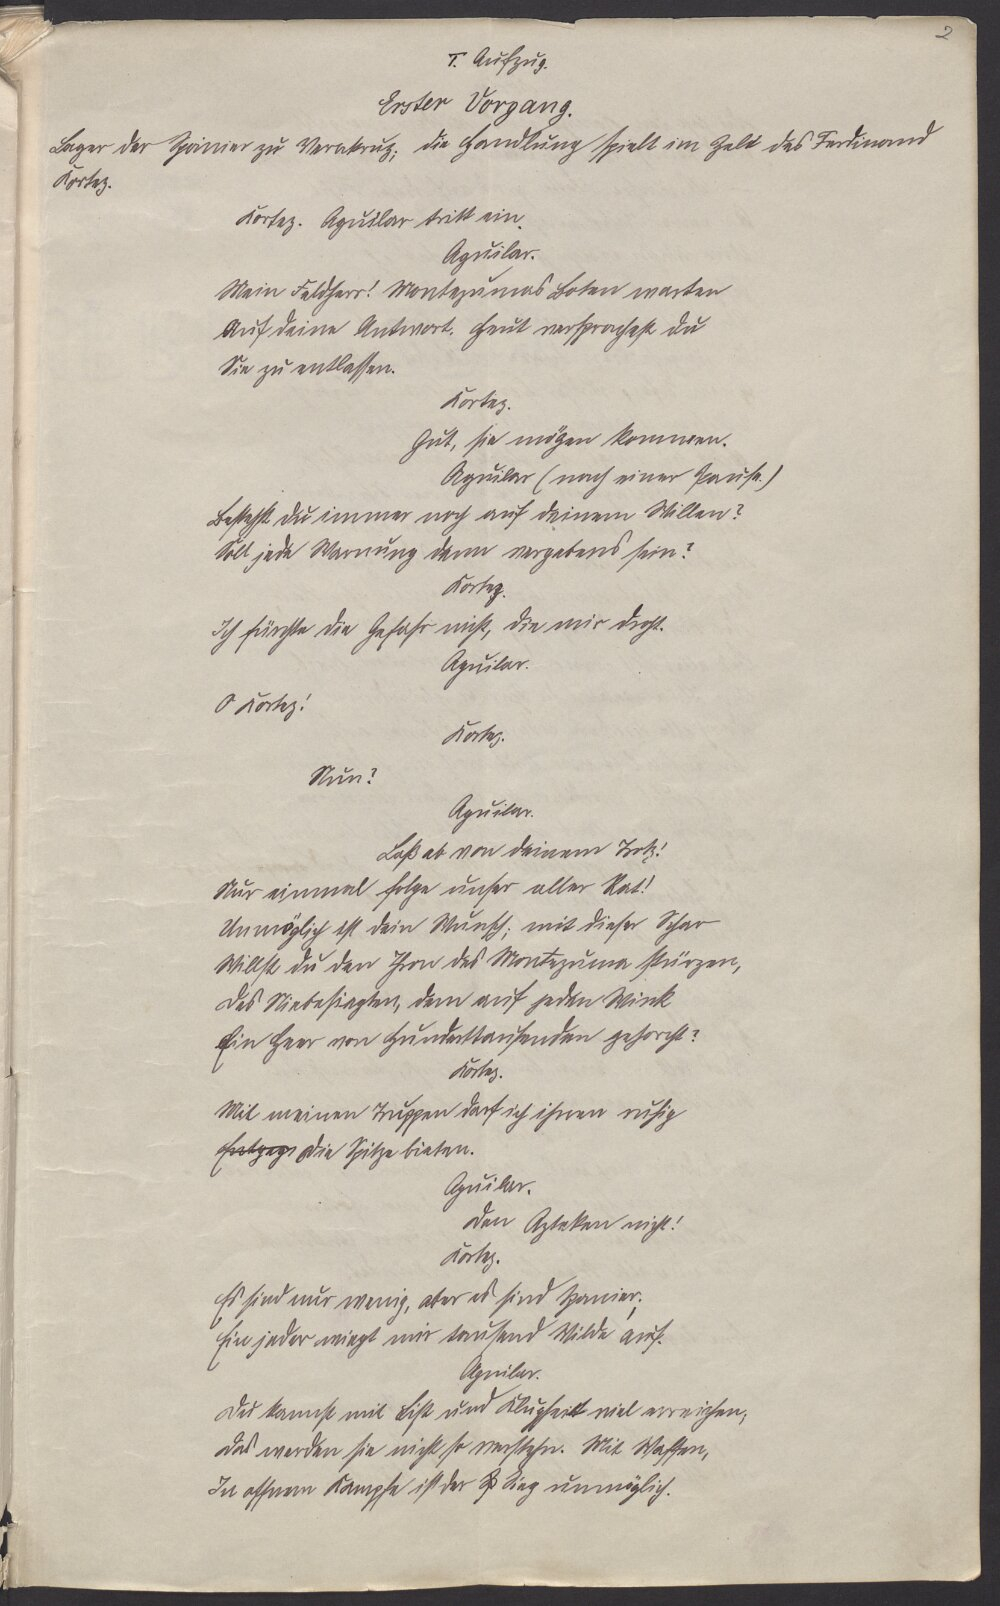 2
I. Aufzug.
Erster Vorgang.
Lager der Spanier zu Verakruz; die Handlung spielt im Zelt des Ferdinand
Kortez.
Kortez. Aguilar tritt ein.
Aguilar.
Mein Feldherr! Montezumas Boten warten
Auf deine Antwort. Heut versprachst du
Sie zu entlassen.
Kortez.
Gut, sie mögen kommen.
Aguilar (nach einer Pause.)
Bestehst du immer noch auf deinem Willen?
Soll jede Warnung denn vergebens sein?
Kortez.
Ich fürchte die Gefahr nicht, die mir droht.
Aguilar.
O Kortez!
Kortez.
Nun?
Aguilar.
Laß ab von deinem Trotz!
Nur einmal folge unser aller Rat!
Unmöglich ist dein Wunsch; mit dieser Schar
Willst du den Thron des Montezuma stürzen,
Des Niebesiegten, dem auf jeden Wink
Ein Heer von Hunderttausenden gehorcht?
Kortez.
Mit meinen Truppen darf ich ihnen ruhig
Entgeg die Spitze bieten.
Aguilar.
Den Azteken nicht!
Kortez.
Es sind nur wenig, aber es sind Spanier;
Ein jeder wiegt mir tausend Wilde auf.
Aguilar.
Du kannst mit List und Klugheit viel erreichen,
Das werden sie nicht so verstehn. Mit Waffen,
In offnem Kampfe ist der Sieg unmöglich.